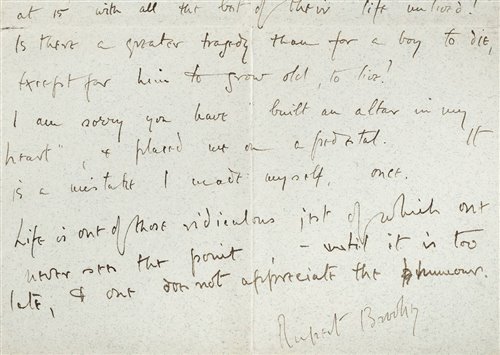 at 15 with all the best of their life unlived!
Is there a greater tragedy than for a boy to die,
except for him to grow old, to live!
I am sorry you have built an altar in my
heart", & placed me on a pedestal. It
is a mistake I made myself, once.
Life is one of those ridiculous jest of which one
never sees the point, - until it is too
late, & one does not appreciate the humour.
Rupert Brooke